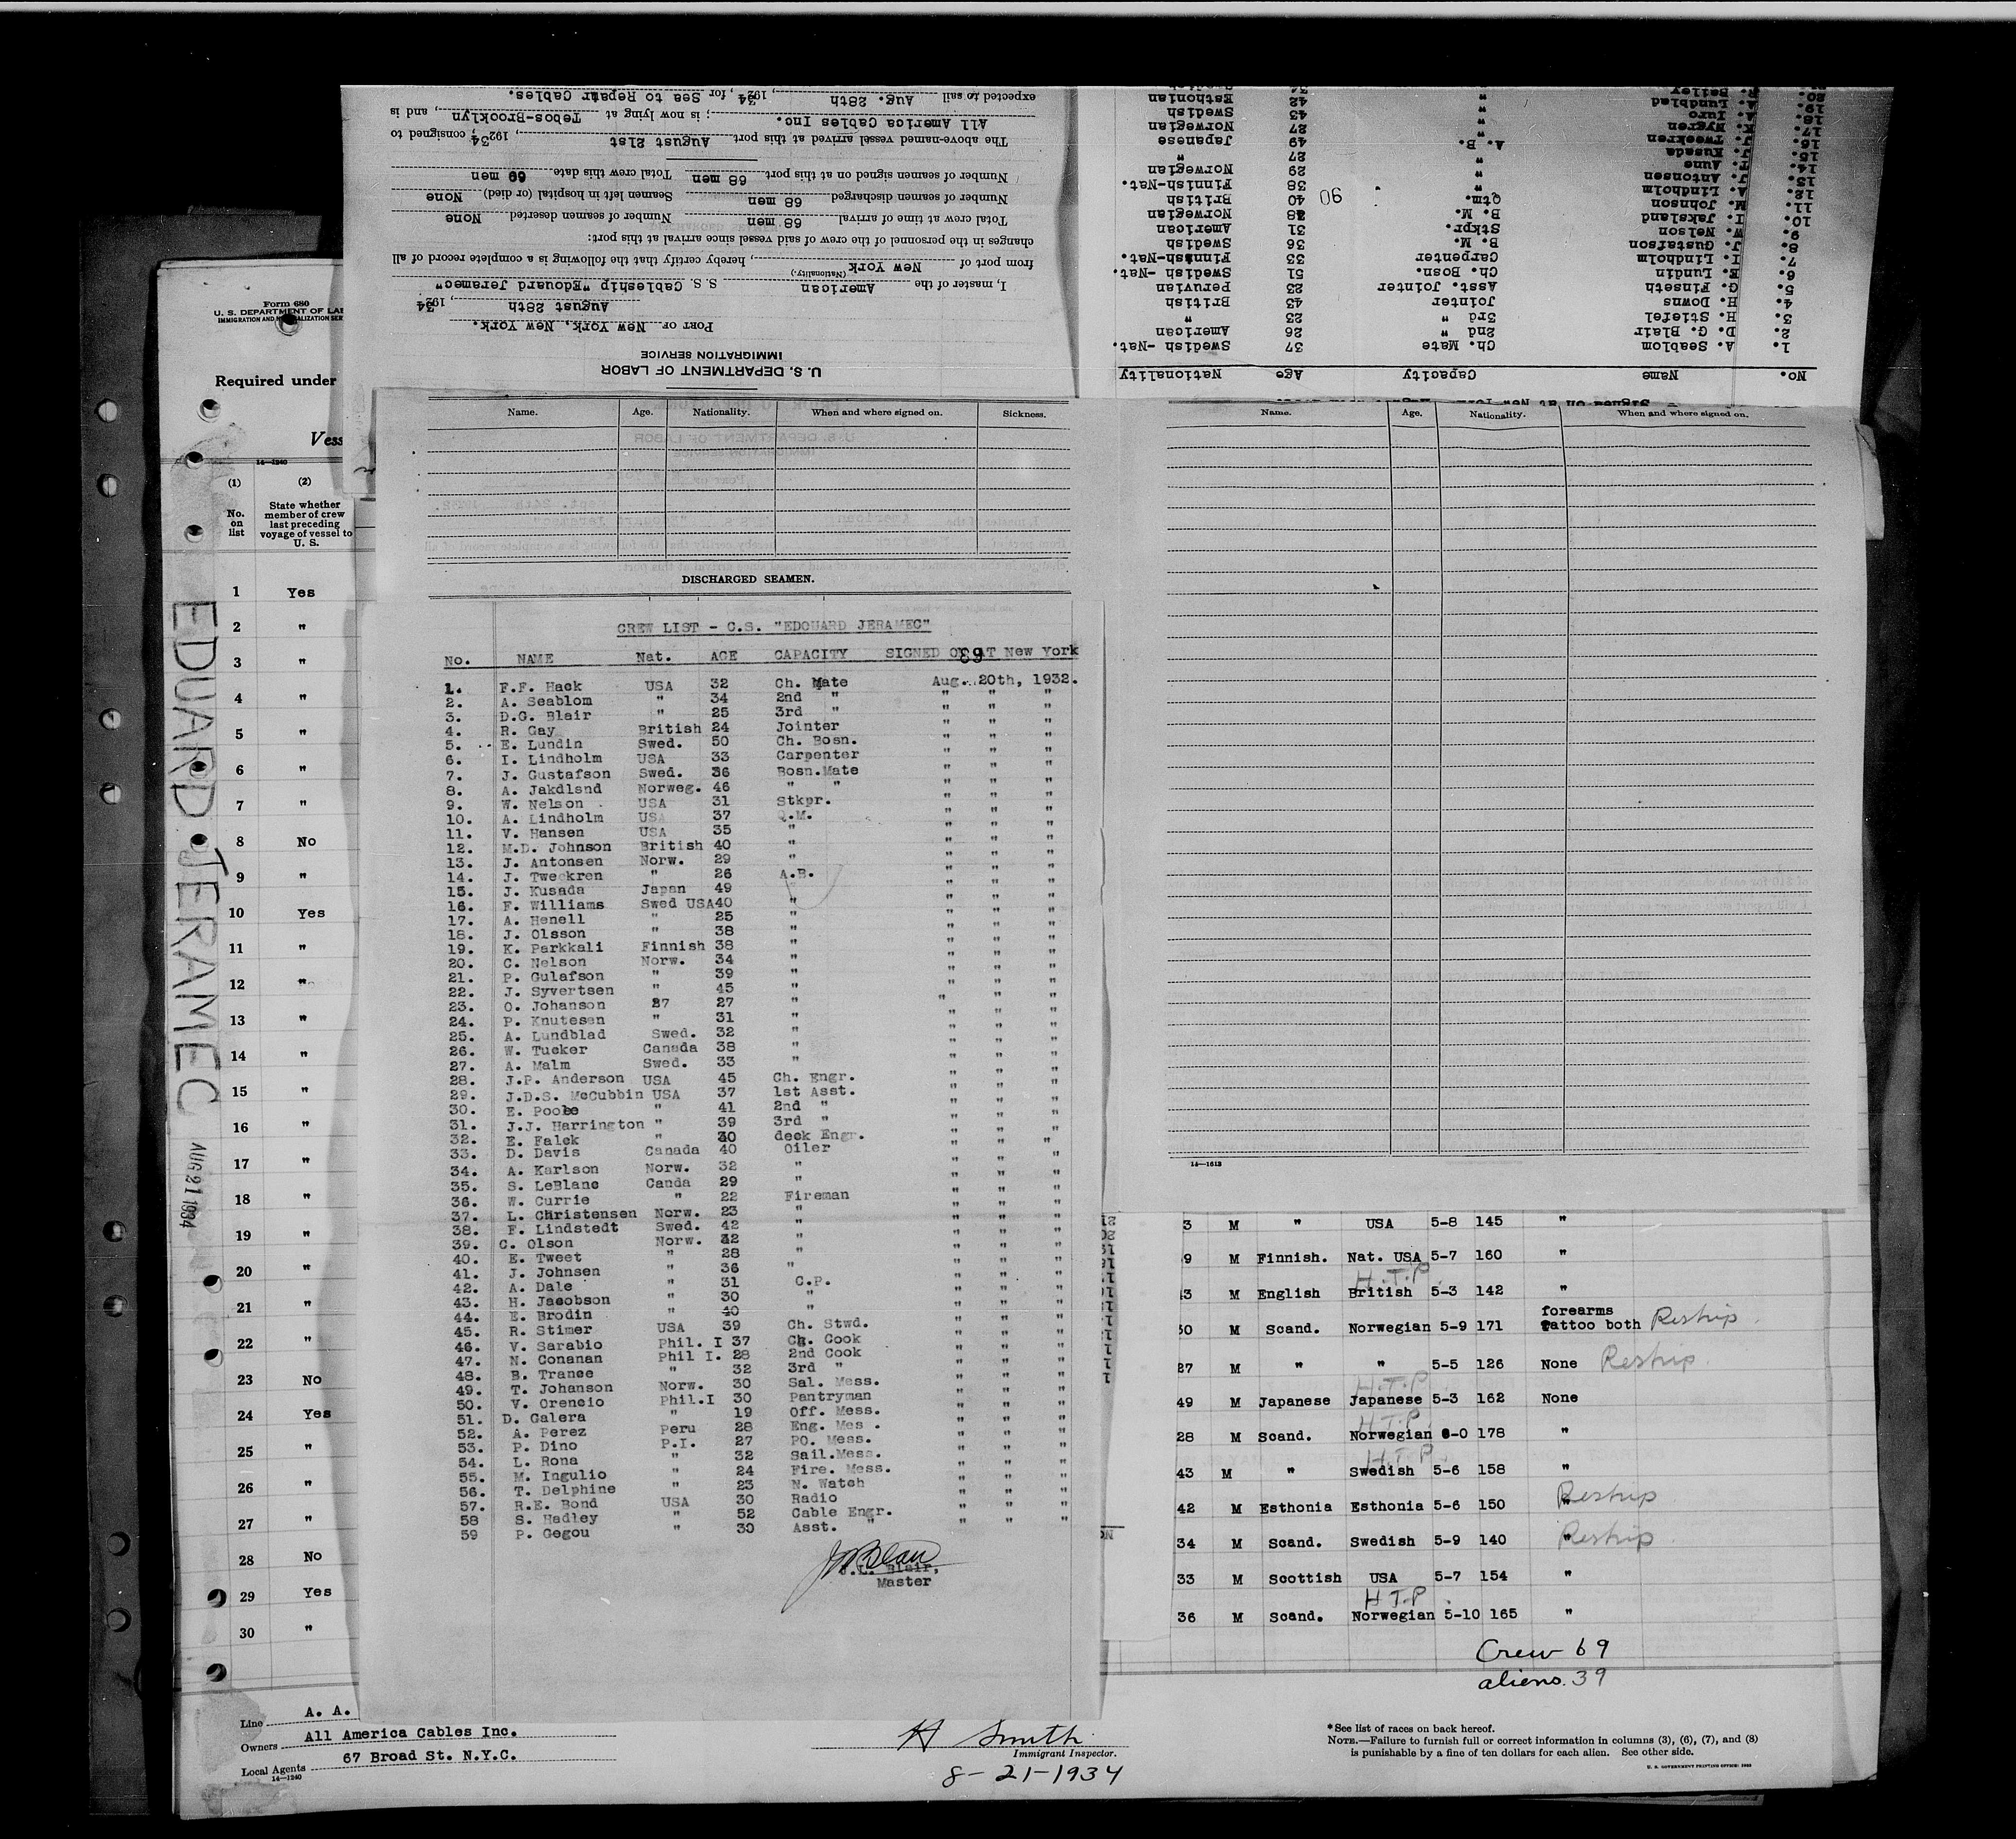 expected to sail Aug. 28th, 1934, for Sea to Repair Cables.
All America Cables Inc.; is now lying at Tebos-Brooklyn, and is
The above-named vessel arrived at this port August 21st, 1934, consigned to
Number of seamen signed on at this port 68 men Total crew this date 69 men
Number of seamen discharged 68 men Seamen left in hospital (or died) None
Total crew at time of arrival 68 men Number of seamen deserted None
changes in the personnel of the crew of said vessel since arrival at this port:
from port of New York, hereby certify that the following is a complete record of all
(Nationality.)
I, master of the American S. S. Cableship "Edouard Jeramec"
August 28th, 1934
PORT OF New York, New York.
IMMIGRATION SERVICE
U. S. DEPARTMENT OF LABOR
20. Bailey
19. A. Lundblad " 42 Esthonian
18. A. Iuro " 43 Swedish
17. K. Nygren " 27 Norwegian
16. J. Tweekren A. B. 49 Japanese
15. J. Kusada " 27 "
14. H. Aune " 29 Norwegian
13. J. Antonsen " 38 Finnish-Nat.
12. A. Lindholm Qtm. 40 British
11. M. Johnson B. M. 48 Norwegian
10. I. Jaksland Stkpr. 31 American
9. W. Nelson B. M. 36 Swedish
8. J. Gustafson Carpenter 33 Finnish-Nat.
7. I. Lindholm Ch. Bosn. 51 Swedish -Nat.
6. E. Lundin Asst. Jointer 23 Peruvian
5. G. Finseth Jointer 43 British
4. H. Downs 3rd " 23 "
3. H. Stiefel 2nd " 26 American
2. D. G. Blair Ch. Mate 37 Swedish -Nat.
1. A. Seablom
No. Name Capacity Age Nationality
90
Form 680
U. S. DEPARTMENT OF LAB
IMMIGRATION AND NATURALIZATION SER
Required under
Vess
14—1240
(1) (2)
No. on list
State whether member of crew last preceding voyage of vessel to U. S.
1 Yes
2 "
3 "
4 "
5 "
6 "
7 "
8 No
9 "
10 Yes
11 "
12 "
13 "
14 "
15 "
16 "
17 "
18 "
19 "
20 "
21 "
22 "
23 No
24 Yes
25 "
26 "
27 "
28 No
29 Yes
30 "
EDUARD JERAMEC AUG 21 1934
Name. Age. Nationality. When and where signed on. Sickness.
DISCHARGED SEAMEN.
Name. Age. Nationality. When and where signed on.
14—1613
CREW LIST - C.S. "EDOUARD JERAMEC"
39
No. NAME Nat. AGE CAPACITY SIGNED ON AT New York
1. F.F. Hack USA 32 Ch. Mate Aug. 20th, 1932.
2. A. Seablom " 34 2nd " " " "
3. D.G. Blair " 25 3rd " " " "
4. R. Gay British 24 Jointer " " "
5. E. Lundin Swed. 50 Ch. Bosn. " " "
6. I. Lindholm USA 33 Carpenter " " "
7. J. Gustafson Swed. 36 Bosn.Mate " " "
8. A. Jakdlsnd Norweg. 46 " " " " "
9. W. Nelson USA 31 Stkpr. " " "
10. A. Lindholm USA 37 Q.M. " " "
11. V. Hansen USA 35 " " " "
12. M.D. Johnson British 40 " " " "
13. J. Antonsen Norw. 29 " " " "
14. J. Tweekren " 26 A.B. " " "
15. J. Kusada Japan 49 " " "
16. F. Williams Swed USA40 " " " "
17. A. Henell " 25 " " " "
18. J. Olsson " 38 " " " "
19. K. Parkkali Finnish 38 " " " "
20. C. Nelson Norw. 34 " " " "
21. P. Gulafson " 39 " " " "
22. J. Syvertsen " 45 " " " "
23. O. Johanson 27 27 " " " "
24. P. Knutesen " 31 " " " "
25. A. Lundblad Swed. 32 " " " "
26. W. Tucker Canada 38 " " " "
27. A. Malm Swed. 33 " " " "
28. J.P. Anderson USA 45 Ch. Engr. " " "
29. J.D.S. McCubbin USA 37 1st Asst. " " "
30. E. Poole " 41 2nd " " " "
31. J.J. Harrington " 39 3rd " " " "
32. E. Falck " 30 deck Engr. " " "
33. D. Davis Canada 40 Oiler " " "
34. A. Karlson Norw. 32 " " " "
35. S. LeBlanc Canda 29 " " " "
36. W. Currie " 22 Fireman " " "
37. L. Christensen Norw. 23 " " " "
38. F. Lindstedt Swed. 42 " " " "
39. C. Olson Norw. 32 " " " "
40. E. Tweet " 28 " " " "
41. J. Johnsen " 36 " " " "
42. A. Dale " 31 C.P. " " "
43. H. Jacobson " 30 " " " "
44. E. Brodin " 40 " " " "
45. R. Stimer USA 39 Ch. Stwd. " " "
46. V. Sarabio Phil. I 37 Ch. Cook " " "
47. N. Conanan Phil I. 28 2nd Cook " " "
48. B. Trance " 32 3rd " " " "
49. T. Johanson Norw. 30 Sal. Mess. " " "
50. V. Orencio Phil.I 30 Pantryman " " "
51. D. Galera " 19 Off. Mess. " " "
52. A. Perez Peru 28 Eng. Mes . " " "
53. P. Dino P.I. 27 PO. Mess. " " "
54. L. Rona " 32 Sail.Mess. " " "
55. M. Ingulio " 24 Fire. Mess. " " "
56. T. Delphine " 23 N. Watch " " "
57. R.E. Bond USA 30 Radio " " "
58 S. Hadley " 52 Cable Engr. " " "
59 P. Gegou " 30 Asst. " " " "
J.C. Blair,
Master
3 M " USA 5-8 145 "
9 M Finnish. Nat. USA 5-7 160 "
H.T.P.
43 M English British 5-3 142 "
forearms
30 M Scand. Norwegian 5-9 171 Tattoo both Reship
27 M " " 5-5 126 None Reship
H.T.P.
49 M Japanese Japanese 5-3 162 None
H.T.P.
28 M Scand. Norwegian 6-0 178 "
H.T.P.
43 M " Swedish 5-6 158 "
42 M Esthonia Esthonia 5-6 150 " Reship
34 M Scand. Swedish 5-9 140 " Reship
33 M Scottish USA 5-7 154 "
H.T.P.
36 M Scand. Norwegian 5-10 165 "
Crew 69
aliens 39
Line A. A.
Owners All America Cables Inc.
Local Agents 67 Broad St. N.Y.C.
14—1240
H Smith
Immigrant Inspector.
8-21-1934
*See list of races on back hereof.
NOTE.—Failure to furnish full or correct information in columns (3), (6), (7), and (8)
is punishable by a fine of ten dollars for each alien. See other side.